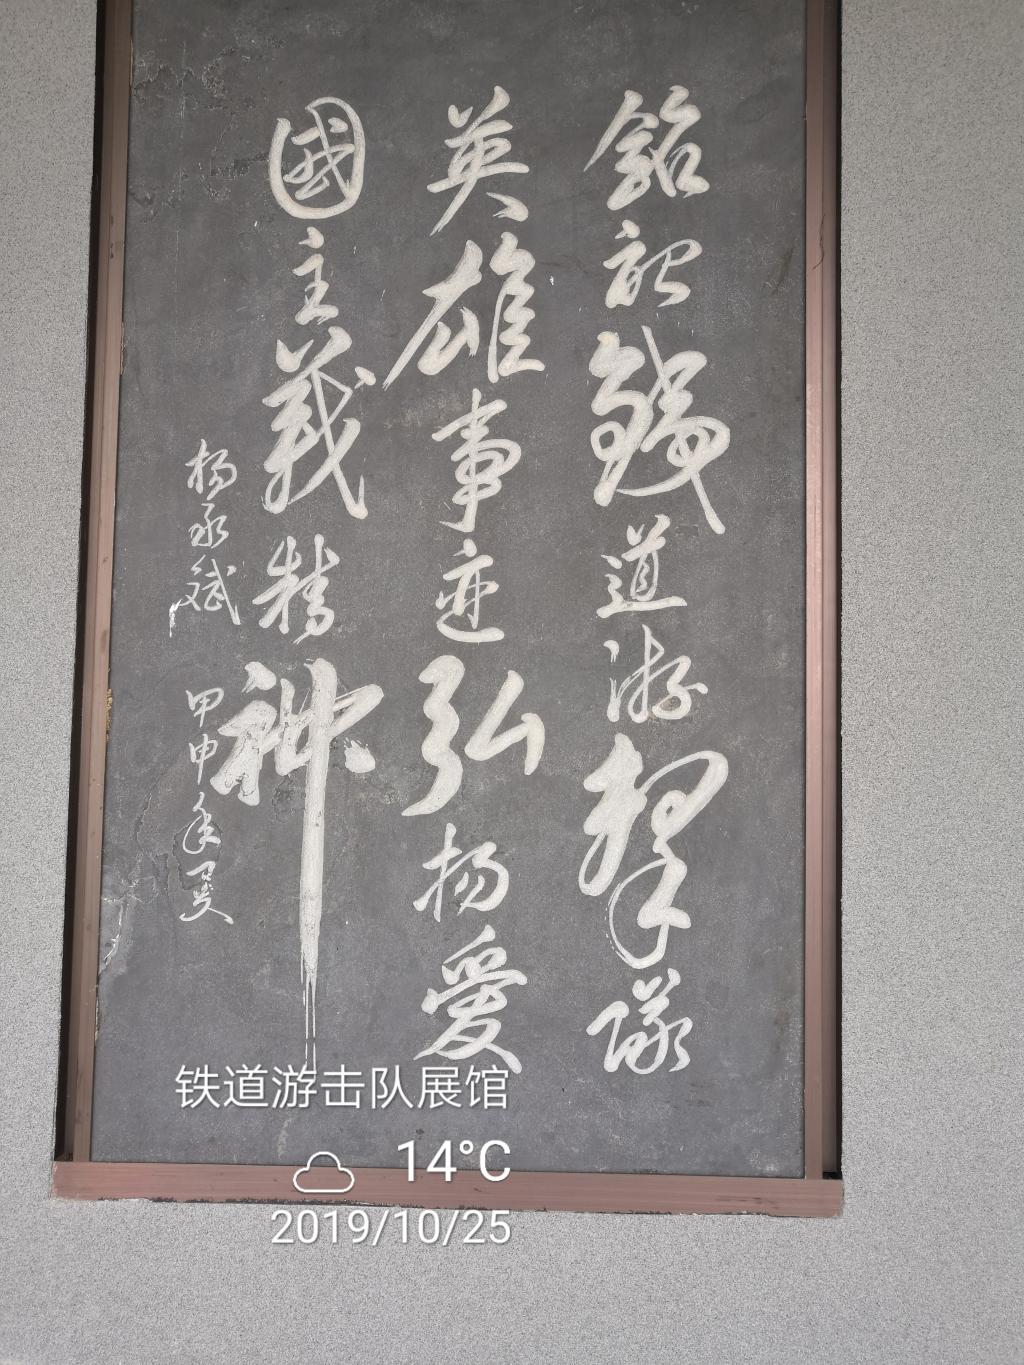 銘記鐵道游擊隊
英雄事迹弘扬愛
國主義精神
杨承斌
甲申年夏
铁道游击队展馆
14°C
2019/10/25